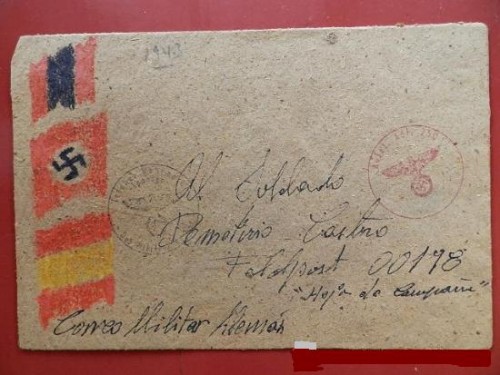 1943
Al Soldado
Demetrio Castro
Feldpost 00198
"Hoja de Campaña"
Correo Militar Alemán